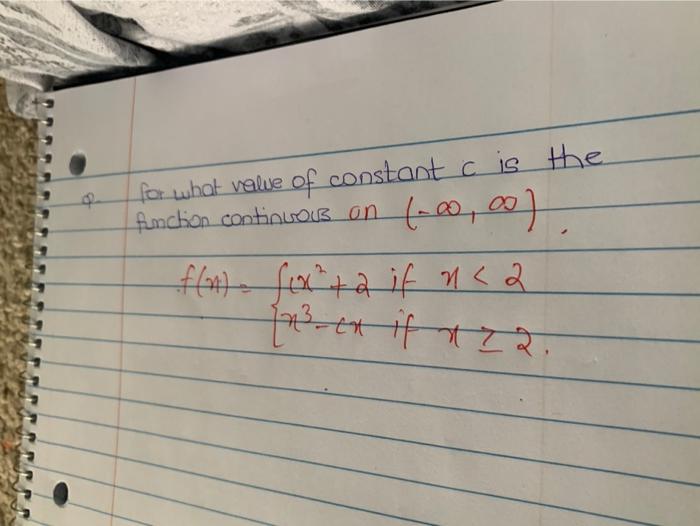 Q. for what value of constant c is the
function continuous on (-∞, ∞).
f(x) = {cx² + 2 if x < 2
{x³ - cx if x ≥ 2.